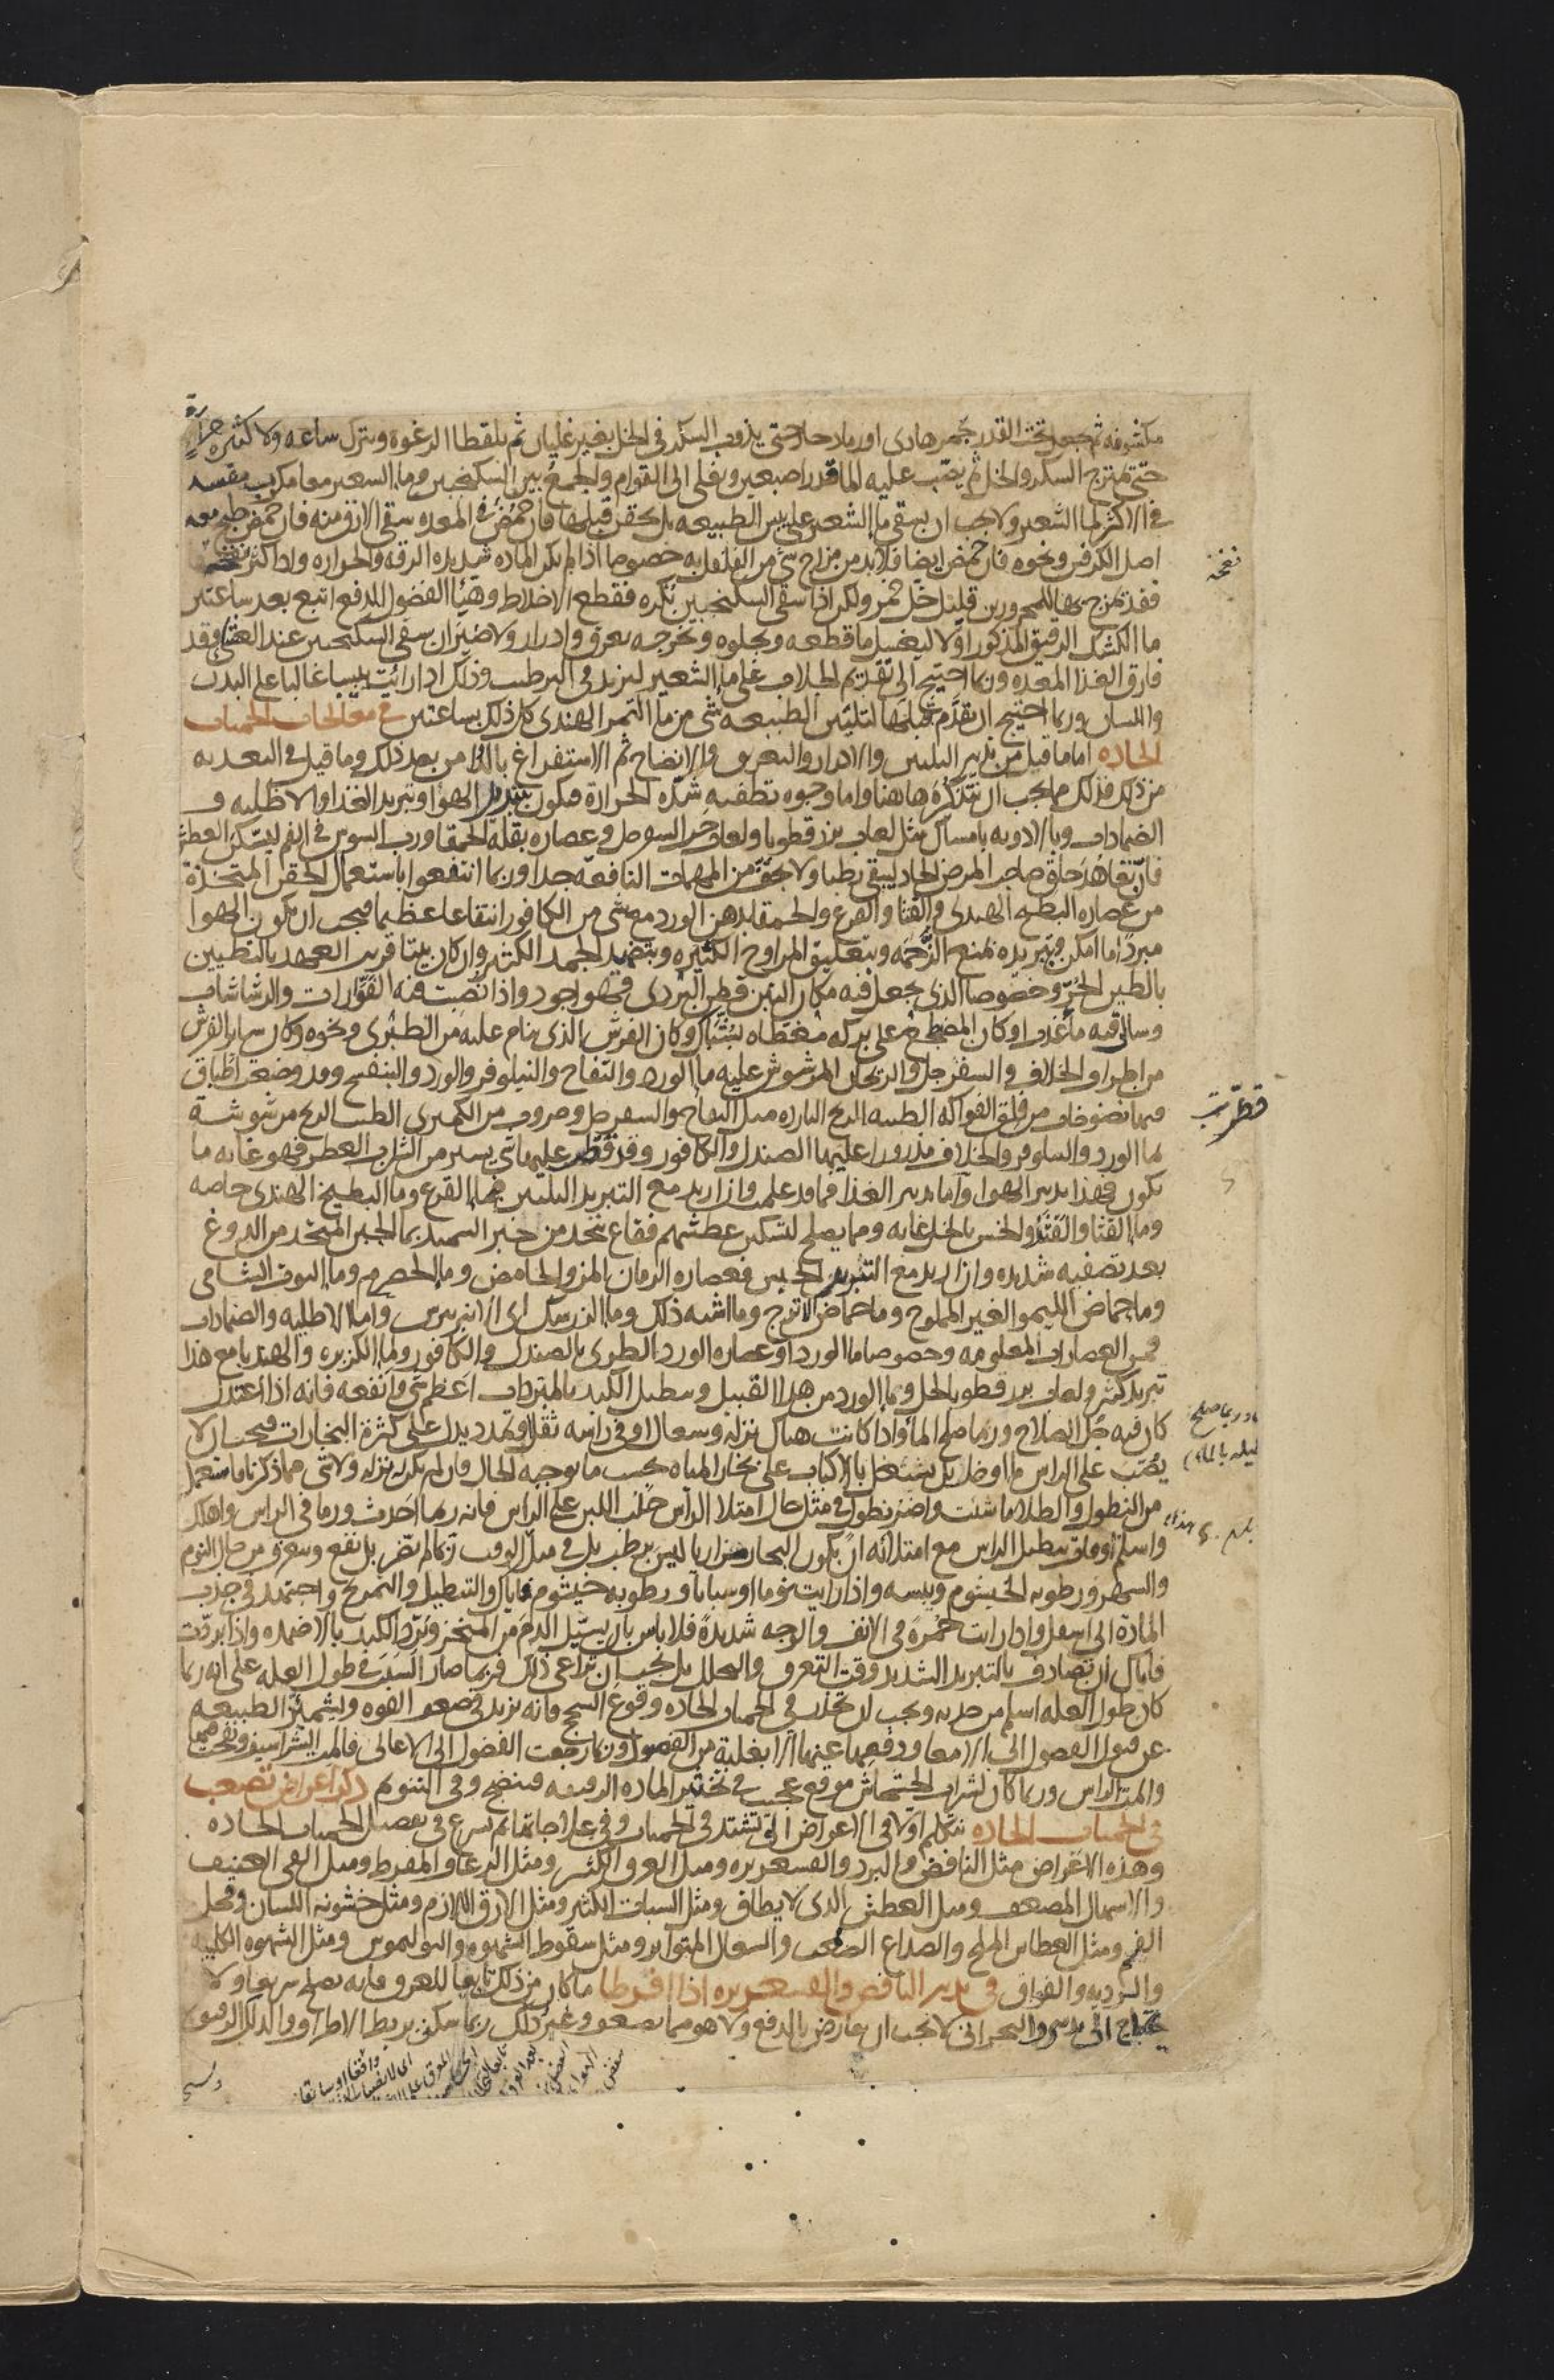 مكشوفه ثم يجعل تحت القدر جمر هادى او رماد حار حتى يذوب السكر فى الخل بغير غليان ثم يلقط الرغوه ويترك ساعه ولا كثير حرارة
حتى يمتزج السكر والخل ثم يصب عليه الما قدر اصبعين ويغلى الى القوام والجمع بين السكنجبين وما الشعير معا مكرب مفسد
فى الاكثر لما الشعير ولا يجب ان يسقى ما الشعير على يبس الطبيعه بل يحقن قبلها فان حمض فى المعده سقى الارق منه فان حمض طبخ معه
اصل الكرفس ونحوه فان حمض ايضا فلا بد من مزاج شى من الفلفل به خصوصا اذا لم يكن الماده شديده الرقه والحراره واذا كثر نفخه
فقد تمزج بها للمحرورين قليل خل خمر ولكن اذا سقى السكنجبين بكره فقطع الاخلاط وهيا الفضول للدفع اتبع بعد ساعتين
ما الكشك الرقيق المذكور اولا ليغسل ما قطعه ويجلوه ويخرجه بعرق وادرار ولا ضير ان يسقى السكنجبين عند العشى وقد
فارق الغذا المعده وربما احتيج الى تقديم الجلاب على ما الشعير ليزيد فى الترطيب وذلك اذا رايت يبسا غالبا على البدن
واللسان وربما احتيج ان يقدم قبلها لتليين الطبيعه شى من ما التمر الهندى كل ذلك بساعتين فى معالجات الحميات
الحاده اما ما قيل من تدبير التليين والادرار والتعريق والانضاج ثم الاستفراغ بالدوا من بعد ذلك وما قيل فى التغديه
من ذلك فذلك ما يجب ان نتذكره هاهنا واما وجوه تطفيه شده الحرارة فيكون بتبريد الهوا وتبريد الغذا والاطليه و
الضمادات وبالادويه بامساك مثل لعاب بزر قطونا ولعاب حب السفرجل وعصاره بقله الحمقا ورب السوس فى الفم ليسكن العطش
فان تعاهد حلق صاحب المرض الحاد ليبقى رطبا ولا يجف من المهمات النافعه جدا وربما انتفعوا باستعمال الحقن المتخذة
من عصاره البطيخ الهندى والقثا والقرع والحمقا بدهن الورد مع شى من الكافور انتفاعا عظيما فيجب ان يكون الهوا
مبردا ما امكن وتبريده بمنع الزحمه وبتعليق المراوح الكثيره وبتنضيد الجمد الكثير وان كان بيتا قريب العهد بالتطيين
بالطين الحر وخصوصا الذى يجعل فيه مكان التبن قطن البردى فهو اجود واذا نصبت فيه الفوارات والرشاشات
وسال فيه ما عذب او كان المضجع على بركه مغطاه بشباك وكان الفرش الذى ينام عليه من الطبرى ونحوه وكان سائر الفرش
من اطراف الخلاف والسفرجل والريحان المرشوش عليه ما الورد والتفاح والنيلوفر والورد والبنفسج وقد وضعت اطباق
فيها نضوخات من فلق الفواكه الطيبه الريح البارده مثل التفاح والسفرجل وضروب من الكمثرى الطيب الريح مرشوشة
بما الورد والنيلوفر والخلاف مذرورا عليها الصندل والكافور وقد قطر عليها شى يسير من الشراب العطر فهو غايه ما
يكون فهذا تدبير الهوا واما تدبير الغذا فما قد علمت وان اريد مع التبريد التليين فما القرع وما البطيخ الهندى خاصه
وما القثا والقثد والخس بالخل غايه ومما يصلح لتسكين عطشهم فقاع يتخذ من خبز السميد بما الجبن المتخذ من الدوغ
بعد تصفيه شديده وان اريد مع التبريد الحبس فعصاره الرمان المز والحامض وما الحصرم وما التوت الشامى
وما حماض الليمو الغير المملوح وما حماض الاترج وما اشبه ذلك وما الزرشك اى الانبرباريس واما الاطليه والضمادات
فمن العصارات المعلومه وخصوصا ما الورد او عصاره الورد الطرى بالصندل والكافور وما الكزبره والهندبا مع هذا
تبريد كثير ولعاب بزر قطونا بالخل وما الورد من هذا القبيل وتنطيل الكبد بالمبردات اعظم شى وانفعه فانه اذا اعتدل
كان فيه جل الصلاح وربما صلح بالما واذا كانت هناك نزله وسعال او فى راسه ثقل وتمدد يدل على كثرة البخارات فيجب ان لا
يصب على الراس ما او خل بل يشتغل بالاكباب على بخار المياه بحسب ما يوجبه الحال فان لم يكن نزله ولا شى مما ذكرنا فاستعمل
من النطول والطلا ما شئت واضر نطول فى مثل حال امتلا الراس حلب اللبن على الراس فانه ربما احدث ورما فى الراس واهلك
واسلم اوقات تنطيل الراس مع امتلائه ان يكون البخار مراريا ليس برطب بل فى مثل الوقت ربما لم تضر بل نفع وتعرف من حال النوم
والسهر ورطوبه الخيشوم ويبسه واذا رايت نوما او سباتا ورطوبه خيشوم فاياك والتنطيل والتمريخ واجتهد فى جذب
المادة الى اسفل واذا رايت حمرة فى الانف والوجه شديدة فلا باس بان يسيل الدم من المنخر وتبرد الكبد بالاضمده واذا بردت
فاياك ان تصادف بالتبريد الشديد وقت التعرق والتحلل بل يجب ان تراعى ذلك فربما صار السبب فى طول العله على انه ربما
كان طول العله اسلم من حدته ويجب ان تحذر فى الحميات الحاده وقوع السحج فانه يزيد فى ضعف القوه ويشمئز الطبيعه
عن قبول الفضول الى الامعا ودفعها عنها الا بغلبة من الفضول وربما رجعت الفضول الى الاعالى فالمت الشراسيف ونفخت فيها
والمت الراس وربما كان لشراب الخشخاش موقع عجيب فى تخثير الماده الرقيقه فينضج وفى التنويم ذكر اعراض تصعب
فى الحميات الحاده نتكلم اولا فى الاعراض التى تشتد فى الحميات وفى علاجاتها ثم نسرع فى تفصيل الحميات الحاده
وهذه الاعراض مثل النافض والبرد والقشعريره ومثل العرق الكثير ومثل الرعاف المفرط ومثل القى العنيف
والاسهال المضعف ومثل العطش الذى لا يطاق ومثل السبات الكثير ومثل الارق اللازم ومثل خشونه اللسان وقحل
الفم ومثل العطاس الملح والصداع الصعب والسعال المتواتر ومثل سقوط الشهوه والبوليموس ومثل الشهوه الكلبيه
والرديه والفواق فى تدبير النافض والقشعريره اذا افرطا ما كان من ذلك تابعا للعرق فانه يصلح سريعا ولا
يحتاج الى تدبير والبحرانى لا يجب ان يعارض بالدفع ولا هو مما يضعف وغير ذلك ربما سكن بربط الاطراف والدلك الرفيق
نفخه
قطرت